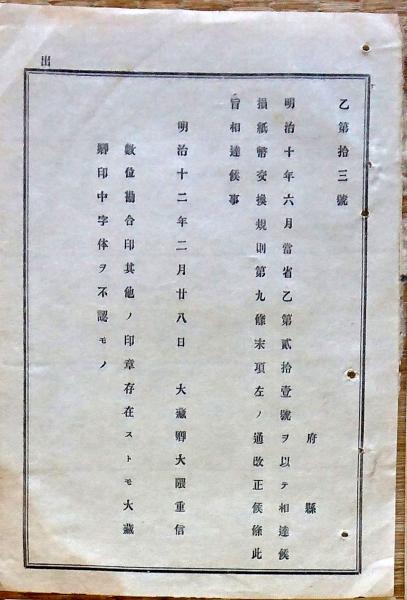 出
乙第拾三號
府縣
明治十年六月當省乙第貳拾壹號ヲ以テ相達候
損紙幣交換規則第九條末項左ノ通改正候條此
旨相達候事
明治十二年二月廿八日 大藏卿大隈重信
數位勘合印其他ノ印章存在ストモ大藏
卿印中字体ヲ不認モノ